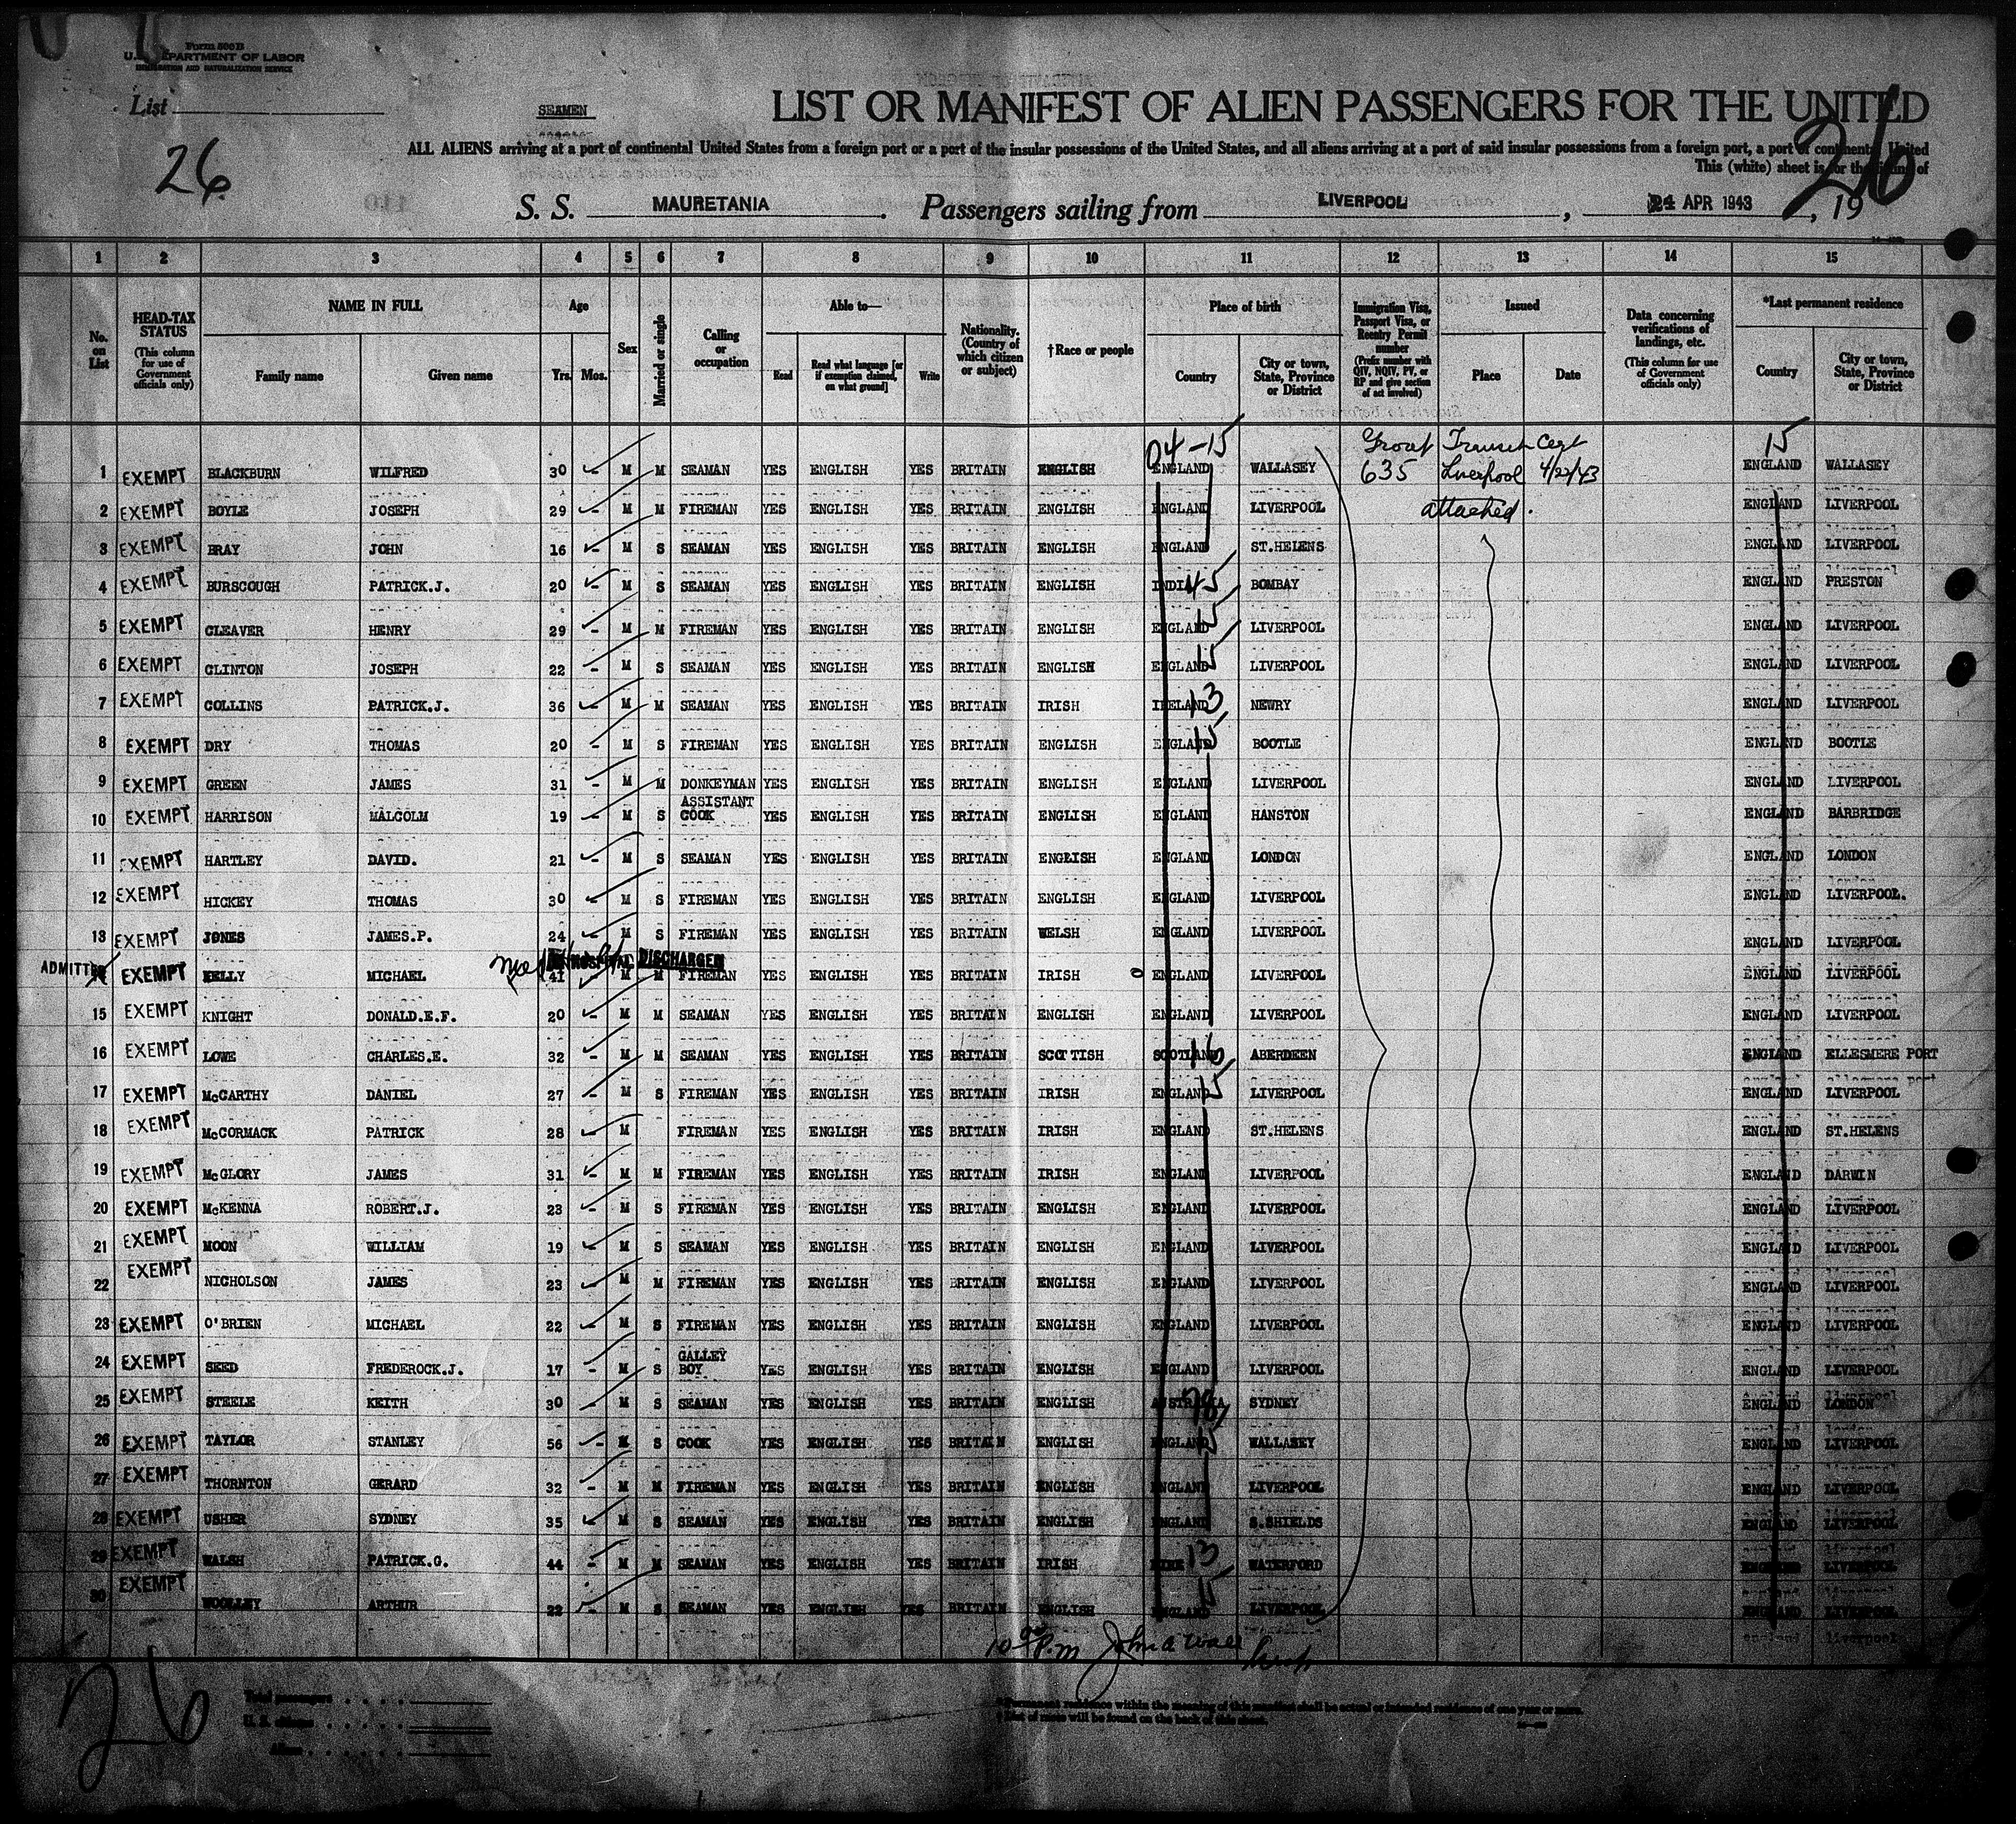 Form 500 B
U. S. DEPARTMENT OF LABOR
IMMIGRATION AND NATURALIZATION SERVICE
List
SEAMEN
LIST OR MANIFEST OF ALIEN PASSENGERS FOR THE UNITED
26
26
ALL ALIENS arriving at a port of continental United States from a foreign port or a port of the insular possessions of the United States, and all aliens arriving at a port of said insular possessions from a foreign port, a port of continental United
This (white) sheet is for the listing of
S. S. MAURETANIA . Passengers sailing from LIVERPOOL , 24 APR 1943 , 19
1 2 3 4 5 6 7 8 9 10 11 12 13 14 15
No. on List
HEAD-TAX STATUS (This column for use of Government officials only)
NAME IN FULL
Family name Given name
Age
Yrs. Mos.
Sex
Married or single
Calling or occupation
Able to—
Read Read what language [or if exemption claimed, on what ground] Write
Nationality. (Country of which citizen or subject)
†Race or people
Place of birth
Country City or town, State, Province or District
Immigration Visa, Passport Visa, or Reentry Permit number (Prefix number with QIV, NQIV, PV, or RP and give section of act involved)
Issued
Place Date
Data concerning verifications of landings, etc. (This column for use of Government officials only)
*Last permanent residence
Country City or town, State, Province or District
04-15 Transit Cert 15
1 EXEMPT BLACKBURN WILFRED 30 - M M SEAMAN YES ENGLISH YES BRITAIN ENGLISH ENGLAND WALLASEY 635 Liverpool 4/22/43 ENGLAND WALLASEY
2 EXEMPT BOYLE JOSEPH 29 - M M FIREMAN YES ENGLISH YES BRITAIN ENGLISH ENGLAND LIVERPOOL attached. ENGLAND LIVERPOOL
3 EXEMPT BRAY JOHN 16 - M S SEAMAN YES ENGLISH YES BRITAIN ENGLISH ENGLAND ST.HELENS ENGLAND LIVERPOOL
4 EXEMPT BURSCOUGH PATRICK.J. 20 - M S SEAMAN YES ENGLISH YES BRITAIN ENGLISH INDIA 45 BOMBAY ENGLAND PRESTON
5 EXEMPT CLEAVER HENRY 29 - M M FIREMAN YES ENGLISH YES BRITAIN ENGLISH ENGLAND 15 LIVERPOOL ENGLAND LIVERPOOL
6 EXEMPT CLINTON JOSEPH 22 - M S SEAMAN YES ENGLISH YES BRITAIN ENGLISH ENGLAND 15 LIVERPOOL ENGLAND LIVERPOOL
7 EXEMPT COLLINS PATRICK.J. 36 - M M SEAMAN YES ENGLISH YES BRITAIN IRISH IRELAND 13 NEWRY ENGLAND LIVERPOOL
8 EXEMPT DRY THOMAS 20 - M S FIREMAN YES ENGLISH YES BRITAIN ENGLISH ENGLAND 15 BOOTLE ENGLAND BOOTLE
9 EXEMPT GREEN JAMES 31 - M M DONKEYMAN YES ENGLISH YES BRITAIN ENGLISH ENGLAND LIVERPOOL ENGLAND LIVERPOOL
10 EXEMPT HARRISON MALCOLM 19 - M S ASSISTANT COOK YES ENGLISH YES BRITAIN ENGLISH ENGLAND HANSTON ENGLAND BARBRIDGE
11 EXEMPT HARTLEY DAVID. 21 - M S SEAMAN YES ENGLISH YES BRITAIN ENGLISH ENGLAND LONDON ENGLAND LONDON
12 EXEMPT HICKEY THOMAS 30 - M S FIREMAN YES ENGLISH YES BRITAIN ENGLISH ENGLAND LIVERPOOL ENGLAND LIVERPOOL.
13 EXEMPT JONES JAMES.P. 24 - M S FIREMAN YES ENGLISH YES BRITAIN WELSH ENGLAND LIVERPOOL ENGLAND LIVERPOOL
HOSPITAL DISCHARGED
ADMITTED EXEMPT KELLY MICHAEL 41 - M M FIREMAN YES ENGLISH YES BRITAIN IRISH ENGLAND LIVERPOOL ENGLAND LIVERPOOL
15 EXEMPT KNIGHT DONALD.E.F. 20 - M M SEAMAN YES ENGLISH YES BRITAIN ENGLISH ENGLAND LIVERPOOL ENGLAND LIVERPOOL
16 EXEMPT LOWE CHARLES.E. 32 - M M SEAMAN YES ENGLISH YES BRITAIN SCOTTISH SCOTLAND 16 ABERDEEN ENGLAND ELLESMERE PORT
17 EXEMPT McCARTHY DANIEL 27 - M S FIREMAN YES ENGLISH YES BRITAIN IRISH ENGLAND 15 LIVERPOOL ENGLAND LIVERPOOL
18 EXEMPT McCORMACK PATRICK 28 - M FIREMAN YES ENGLISH YES BRITAIN IRISH ENGLAND ST.HELENS ENGLAND ST.HELENS
19 EXEMPT McGLORY JAMES 31 - M M FIREMAN YES ENGLISH YES BRITAIN IRISH ENGLAND LIVERPOOL ENGLAND DARWIN
20 EXEMPT McKENNA ROBERT.J. 23 - M S FIREMAN YES ENGLISH YES BRITAIN ENGLISH ENGLAND LIVERPOOL ENGLAND LIVERPOOL
21 EXEMPT MOON WILLIAM 19 - M S SEAMAN YES ENGLISH YES BRITAIN ENGLISH ENGLAND LIVERPOOL ENGLAND LIVERPOOL
22 EXEMPT NICHOLSON JAMES 23 - M M FIREMAN YES ENGLISH YES BRITAIN ENGLISH ENGLAND LIVERPOOL ENGLAND LIVERPOOL
23 EXEMPT O'BRIEN MICHAEL 22 - M S FIREMAN YES ENGLISH YES BRITAIN ENGLISH ENGLAND LIVERPOOL ENGLAND LIVERPOOL
24 EXEMPT SEED FREDEROCK.J. 17 - M S GALLEY BOY YES ENGLISH YES BRITAIN ENGLISH ENGLAND LIVERPOOL ENGLAND LIVERPOOL
25 EXEMPT STEELE KEITH 30 - M S SEAMAN YES ENGLISH YES BRITAIN ENGLISH AUSTRALIA SYDNEY ENGLAND LONDON
26 EXEMPT TAYLOR STANLEY 56 - M S COOK YES ENGLISH YES BRITAIN ENGLISH ENGLAND 15 WALLASEY ENGLAND LIVERPOOL
27 EXEMPT THORNTON GERARD 32 - M M FIREMAN YES ENGLISH YES BRITAIN ENGLISH ENGLAND LIVERPOOL ENGLAND LIVERPOOL
28 EXEMPT USHER SYDNEY 35 - M S SEAMAN YES ENGLISH YES BRITAIN ENGLISH ENGLAND S.SHIELDS ENGLAND LIVERPOOL
29 EXEMPT WALSH PATRICK.G. 44 - M M SEAMAN YES ENGLISH YES BRITAIN IRISH EIRE 13 WATERFORD ENGLAND LIVERPOOL
30 EXEMPT WOOLLEY ARTHUR 22 - M S SEAMAN YES ENGLISH YES BRITAIN ENGLISH ENGLAND 15 LIVERPOOL ENGLAND LIVERPOOL
10 00 P.m John A Wall
26
Total passengers
U. S. citizens
Aliens
* Permanent residence within the meaning of this manifest shall be actual or intended residence of one year or more.
† List of races will be found on the back of this sheet.